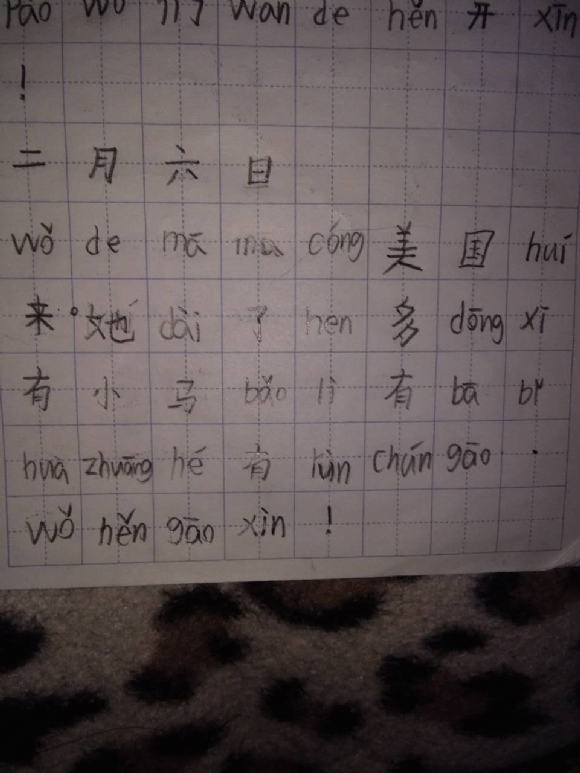 pào wǒ 们 wán de hěn 开 xīn
!
二 月 六 日
wǒ de mā ma cóng 美 国 huí
来 。她 dài 了 hen 多 dōng xī
有 小 马 bǎo lì 有 bā bǐ
huà zhuāng hé 有 rùn chún gāo .
wǒ hěn gāo xìn !